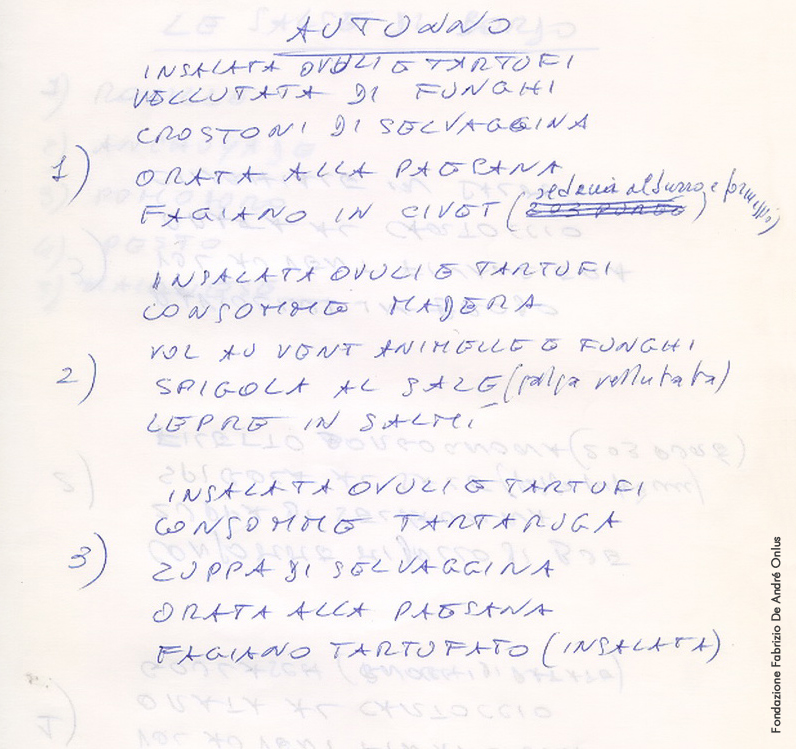 AUTUNNO
INSALATA OVULI E TARTUFI
VELLUTATA DI FUNGHI
CROSTONI DI SELVAGGINA
1) ORATA ALLA PAESANA
sedani al burro e formaggio
FAGIANO IN CIVET ( )
INSALATA OVULI E TARTUFI
CONSOMME MADERA
VOL AU VENT ANIMELLE E FUNGHI
2) SPIGOLA AL SALE (salsa vellutata)
LEPRE IN SALMÍ
INSALATA OVULI E TARTUFI
CONSOMME TARTARUGA
3) ZUPPA DI SELVAGGINA
ORATA ALLA PAESANA
FAGIANO TARTUFATO (INSALATA)
Fondazione Fabrizio De André Onlus